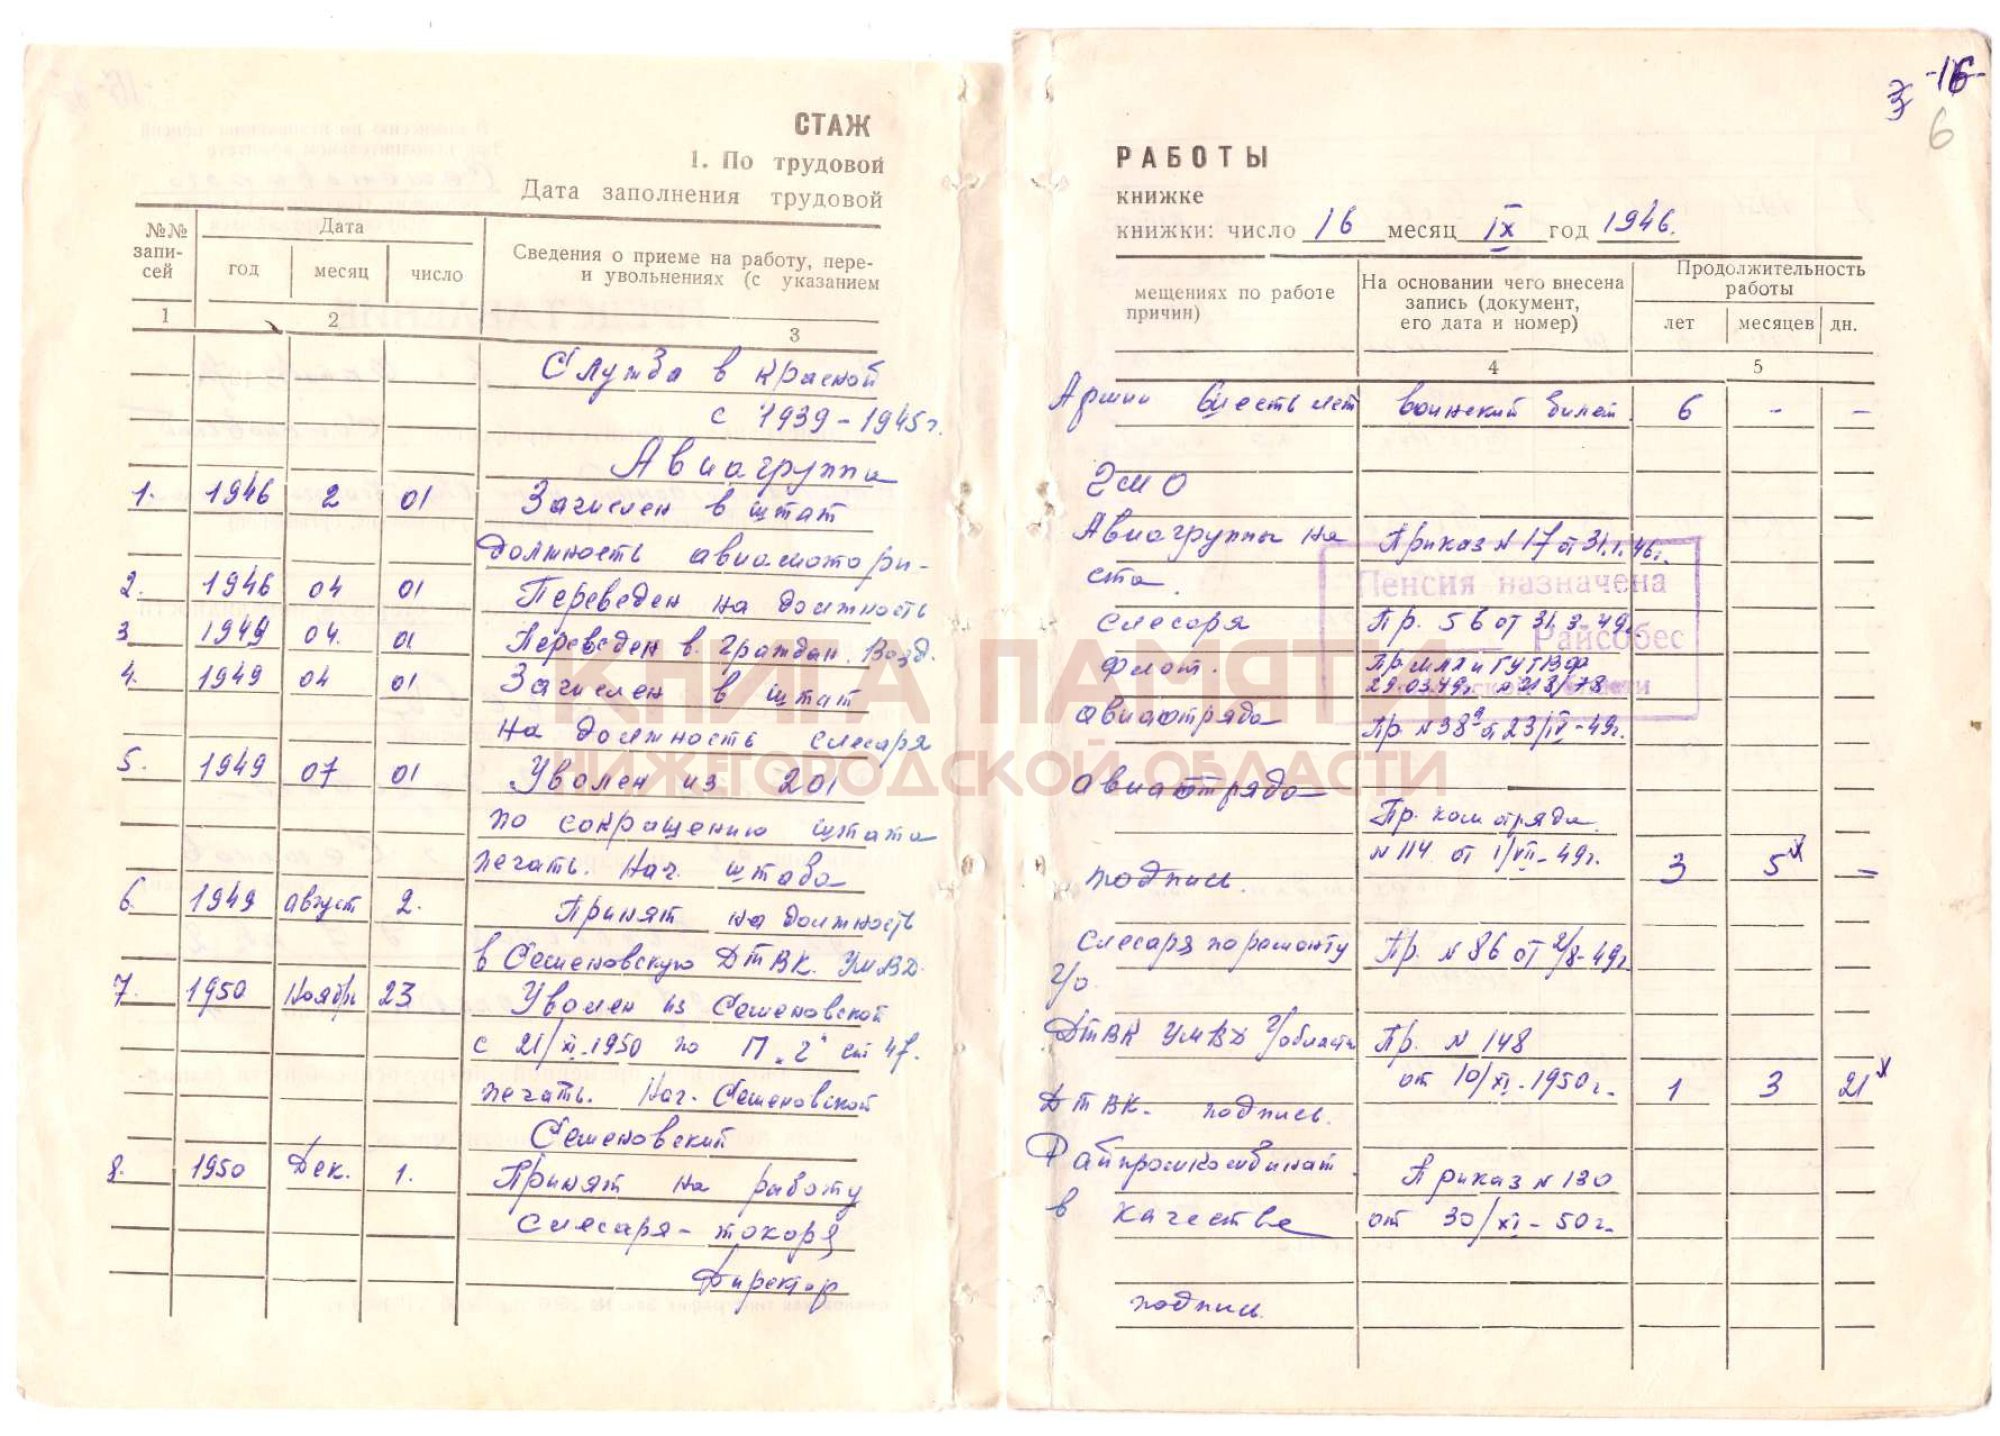 СТАЖ
1. По трудовой
Дата заполнения трудовой
№№ записей
Дата
год месяц число
Сведения о приеме на работу, пере-
и увольнениях (с указанием
1 2 3
Служба в Красной
с 1939-1945г.
Авиагруппа
1. 1946 2 01 Зачислен в штат
должность авиамотори-
2. 1946 04 01 Переведен на должность
3 1949 04. 01 Переведен в. Граждан. Возд.
4. 1949 04 01 Зачислен в штат
на должность слесаря
5. 1949 07 01 Уволен из 201
по сокращению штата
печать. Нач. штаба
6. 1949 август 2. Принят на должность
в Семеновскую ДТВК. УМВД.
7. 1950 Ноябрь 23 Уволен из Семеновской
с 21/XI.1950 по П "г" ст 47.
печать. Нач. Семеновской
Семеновский
8. 1950 Дек. 1. Принят на работу
слесаря-токоря
Директор
-16-
6
РАБОТЫ
книжке
книжки: число 16 месяц IX год 1946.
мещениях по работе
причин)
На основании чего внесена
запись (документ,
его дата и номер)
Продолжительность
работы
лет месяцев дн.
4 5
Армии шесть лет воинский билет. 6 - -
Авиагруппы на Приказ N 17 от 31.1.46г.
ста.
слесаря Пр. 56 от 31.3-49г.
Флот.
29.03.49г. N 213/78
авиаотряда Пр. N 38 от 23/IV-49г.
авиаотряда
Пр. ком отряда.
N 114 от 1/VII-49г.
подпись. 3 5 -
слесаря по ремонту Пр. N 86 от 2/8-49г.
Г/о.
ДТВК УМВД Г/области Пр. N 148
от 10/XI.-1950г. 1 3 21
ДТВК. подпись.
Райпромкомбинат. Приказ N 130
в качестве от 30/XI-50г.
подпись.
Пенсия назначена
Райсобес
КНИГА ПАМЯТИ
НИЖЕГОРОДСКОЙ ОБЛАСТИ